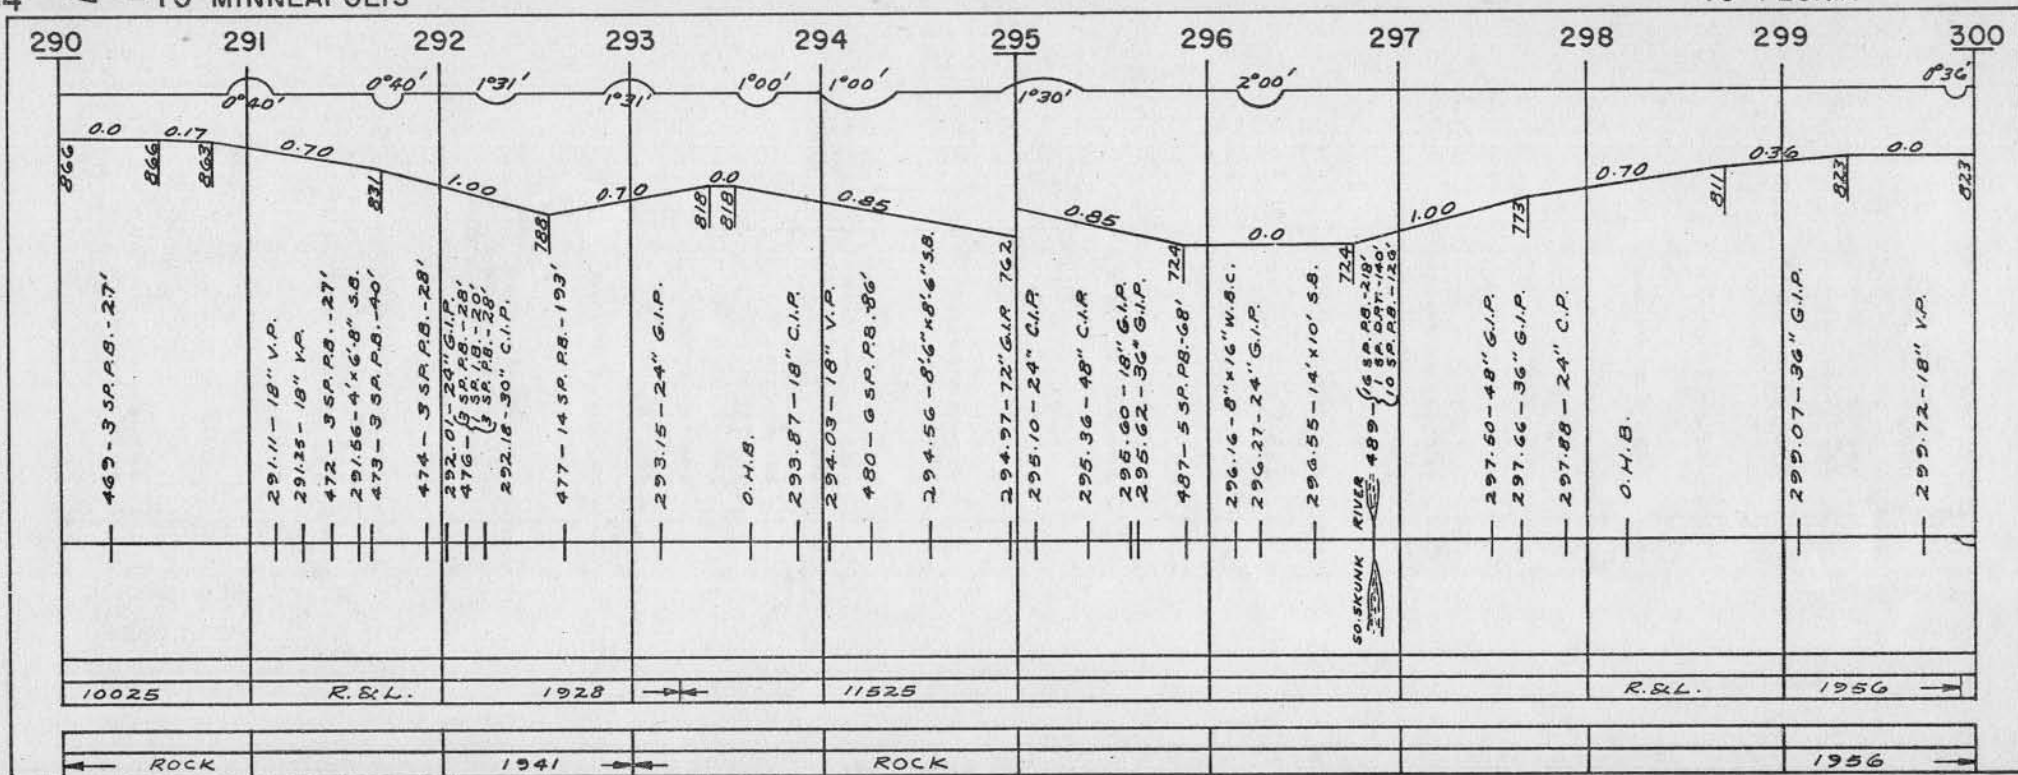 TO MINNEAPOLIS
290 291 292 293 294 295 296 297 298 299 300
0°40' 0°40' 1°31' 1°31' 1°00' 1°00' 1°30' 2°00' 0°36'
0.0 0.17 0.70 1.00 0.70 0.0 0.85 0.85 0.0 1.00 0.70 0.36 0.0
866 866 863 831 788 818 818 762 724 724 773 811 823 823
469-3 SP. P.B.-27'
291.11-18" V.P.
291.25-18" V.P.
472-3 SP. P.B.-27'
291.56-4'x6'-8" S.B.
473-3 SP. P.B.-40'
474-3 SP. P.B.-28'
292.01-24" G.I.P.
476-{3 SP. P.B.-28'
1 SP. I.B.-20'
3 SP. P.B.-28'
292.18-30" C.I.P.
477-14 SP. P.B.-193'
293.15-24" G.I.P.
O.H.B.
293.87-18" C.I.P.
294.03-18" V.P.
480-6 SP. P.B.-86'
294.56-8'6"x8'6" S.B.
294.97-72" G.I.P.
295.10-24" C.I.P.
295.36-48" C.I.P.
295.60-18" G.I.P.
295.62-36" G.I.P.
487-5 SP. P.B.-68'
296.16-8"x16" W.B.C.
296.27-24" G.I.P.
296.55-14'x10' S.B.
SO. SKUNK RIVER
489-{16 SP. P.B.-218'
1 SP. D.P.T.-140'
10 SP. P.B.-126'
297.50-48" G.I.P.
297.66-36" G.I.P.
297.88-24" C.P.
O.H.B.
299.07-36" G.I.P.
299.72-18" V.P.
10025 R.&L. 1928 11525 R.&L. 1956
ROCK 1941 ROCK 1956